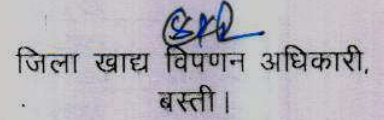 जिला खाद्य विपणन अधिकारी,
बस्ती।